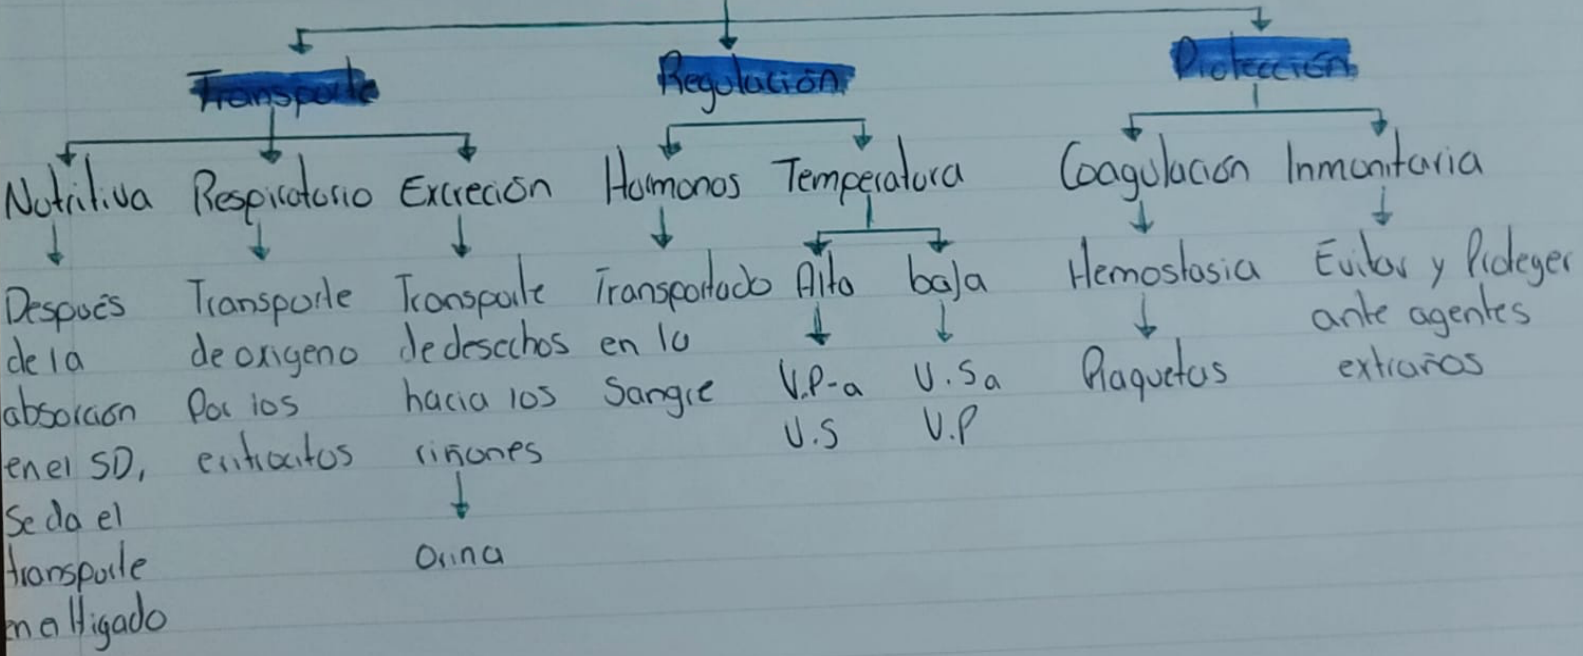 Transporte
Regulación
Protección
Nutritiva
Respiratorio
Excreción
Hormonas
Temperatura
Coagulación
Inmunitaria
Después
de la
absorción
en el SD,
se da el
transporte
en el Higado
Transporte
de oxigeno
Por los
eritrocitos
Transporte
de desechos
hacia los
riñones
Orina
Transportado
en la
Sangre
Alta
V.P-a
V.S
baja
V.Sa
V.P
Hemostasia
Plaquetas
Evitar y Proteger
ante agentes
extraños